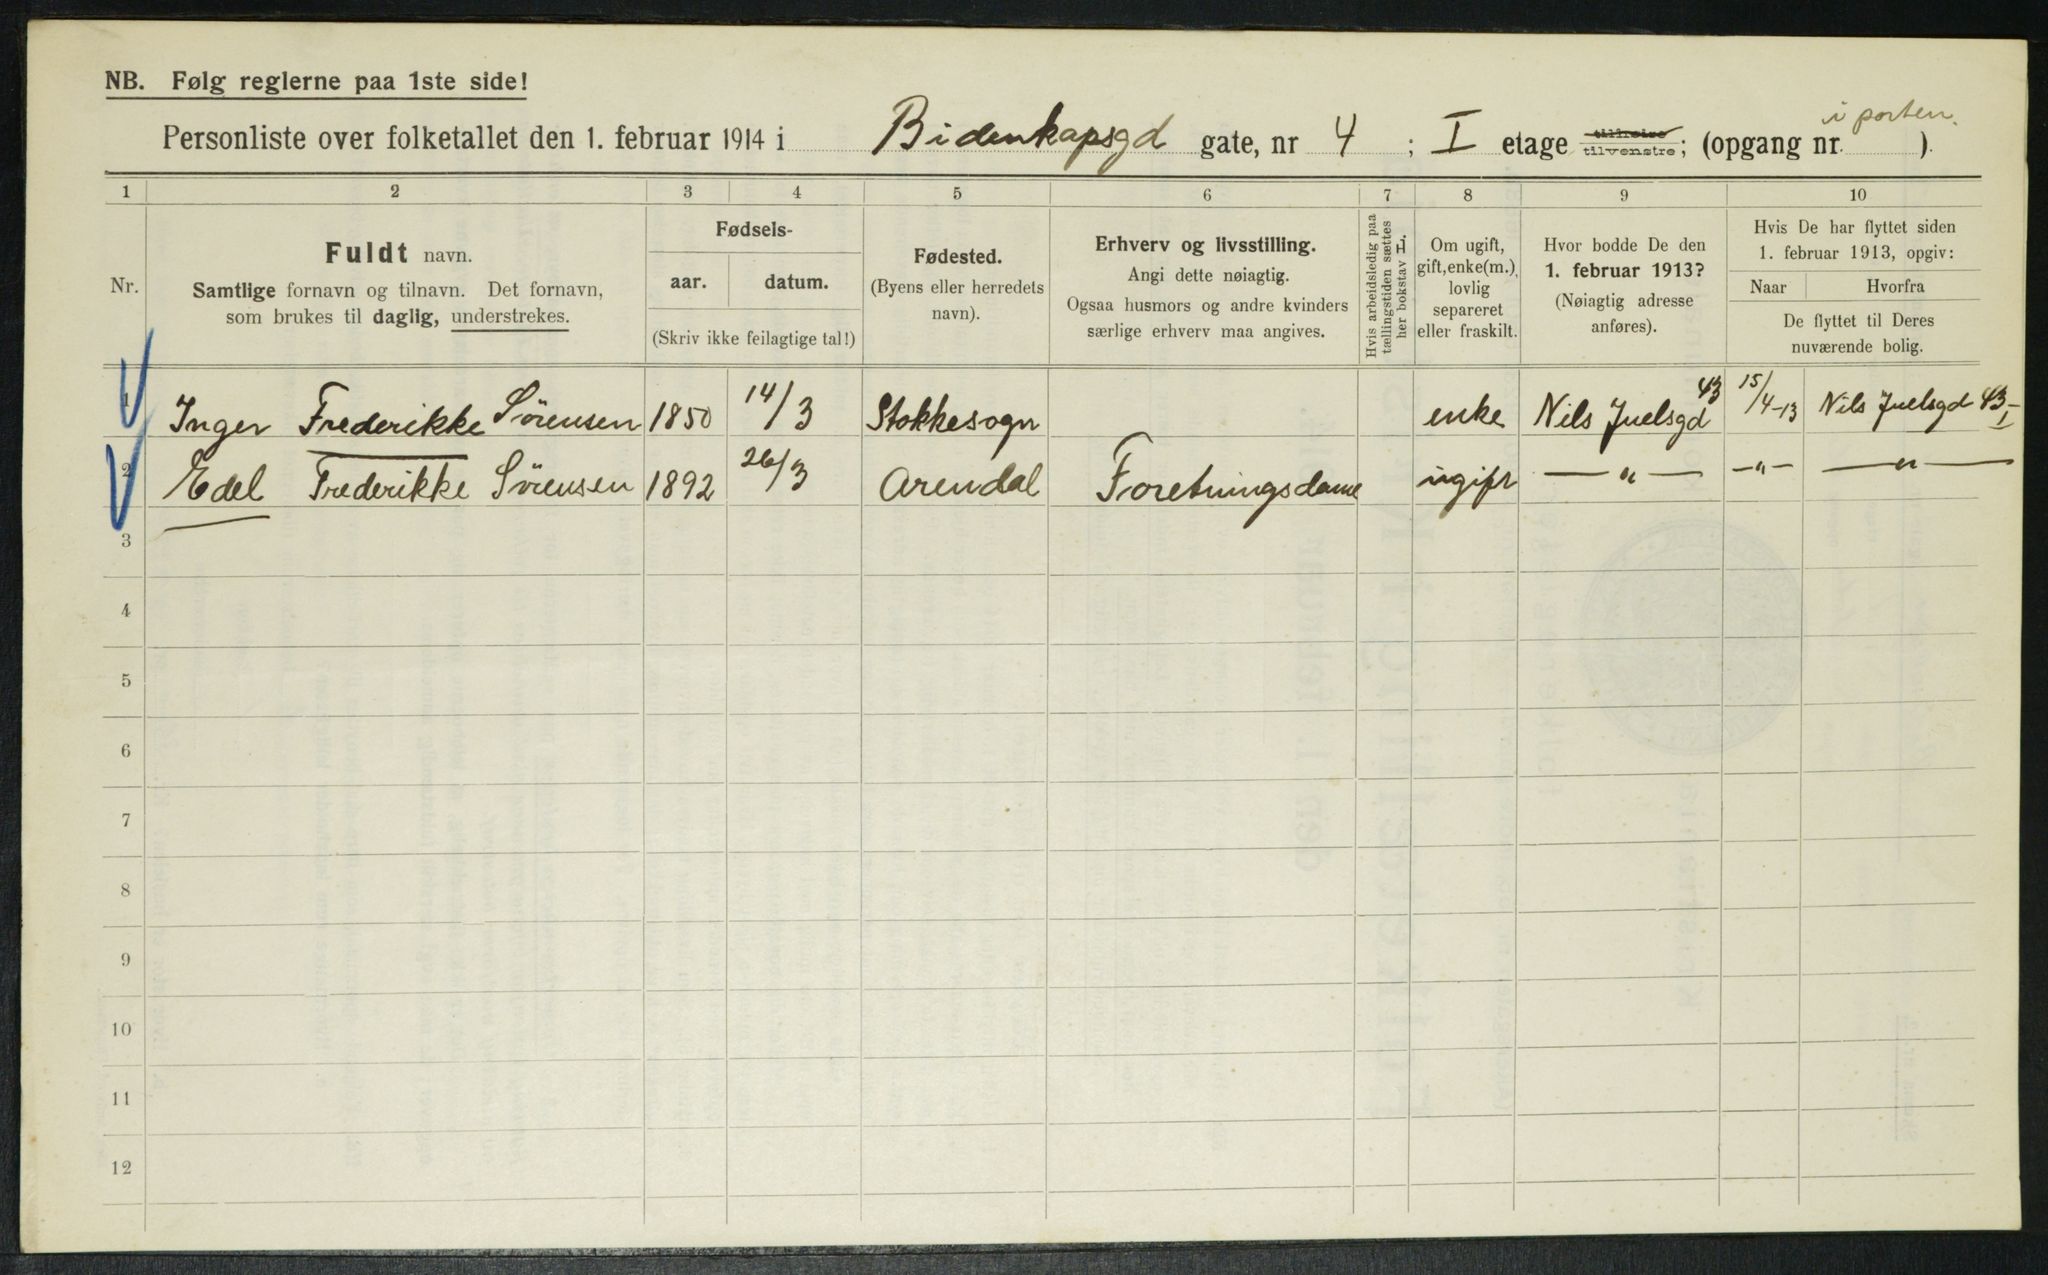 NB. Følg reglerne paa 1ste side!
Personliste over folketallet den 1. februar 1914 i Bidenkapsgd gate, nr 4 ; I etage tilhøire tilvenstre; (opgang nr. i porten. ).
1 2 3 4 5 6 7 8 9 10
Nr.
Fuldt navn.
Samtlige fornavn og tilnavn. Det fornavn,
som brukes til daglig, understrekes.
Fødsels-
aar. datum.
(Skriv ikke feilagtige tal!)
Fødested.
(Byens eller herredets
navn).
Erhverv og livsstilling.
Angi dette nøiagtig.
Ogsaa husmors og andre kvinders
særlige erhverv maa angives.
Hvis arbeidsledig paa
tællingstiden sættes
her bokstav L.
Om ugift,
gift, enke(m.),
lovlig
separeret
eller fraskilt.
Hvor bodde De den
1. februar 1913?
(Nøiagtig adresse
anføres).
Hvis De har flyttet siden
1. februar 1913, opgiv:
Naar Hvorfra
De flyttet til Deres
nuværende bolig.
1 Inger Frederikke Sörensen 1850 14/3 Stokkesogn enke Nils Juelsgd 43 15/4-13 Nils Juelsgd 43-I
2 Edel Frederikke Sörensen 1892 26/3 Arendal Foretningsdame ugift —"— —"— —"—
3
4
5
6
7
8
9
10
11
12